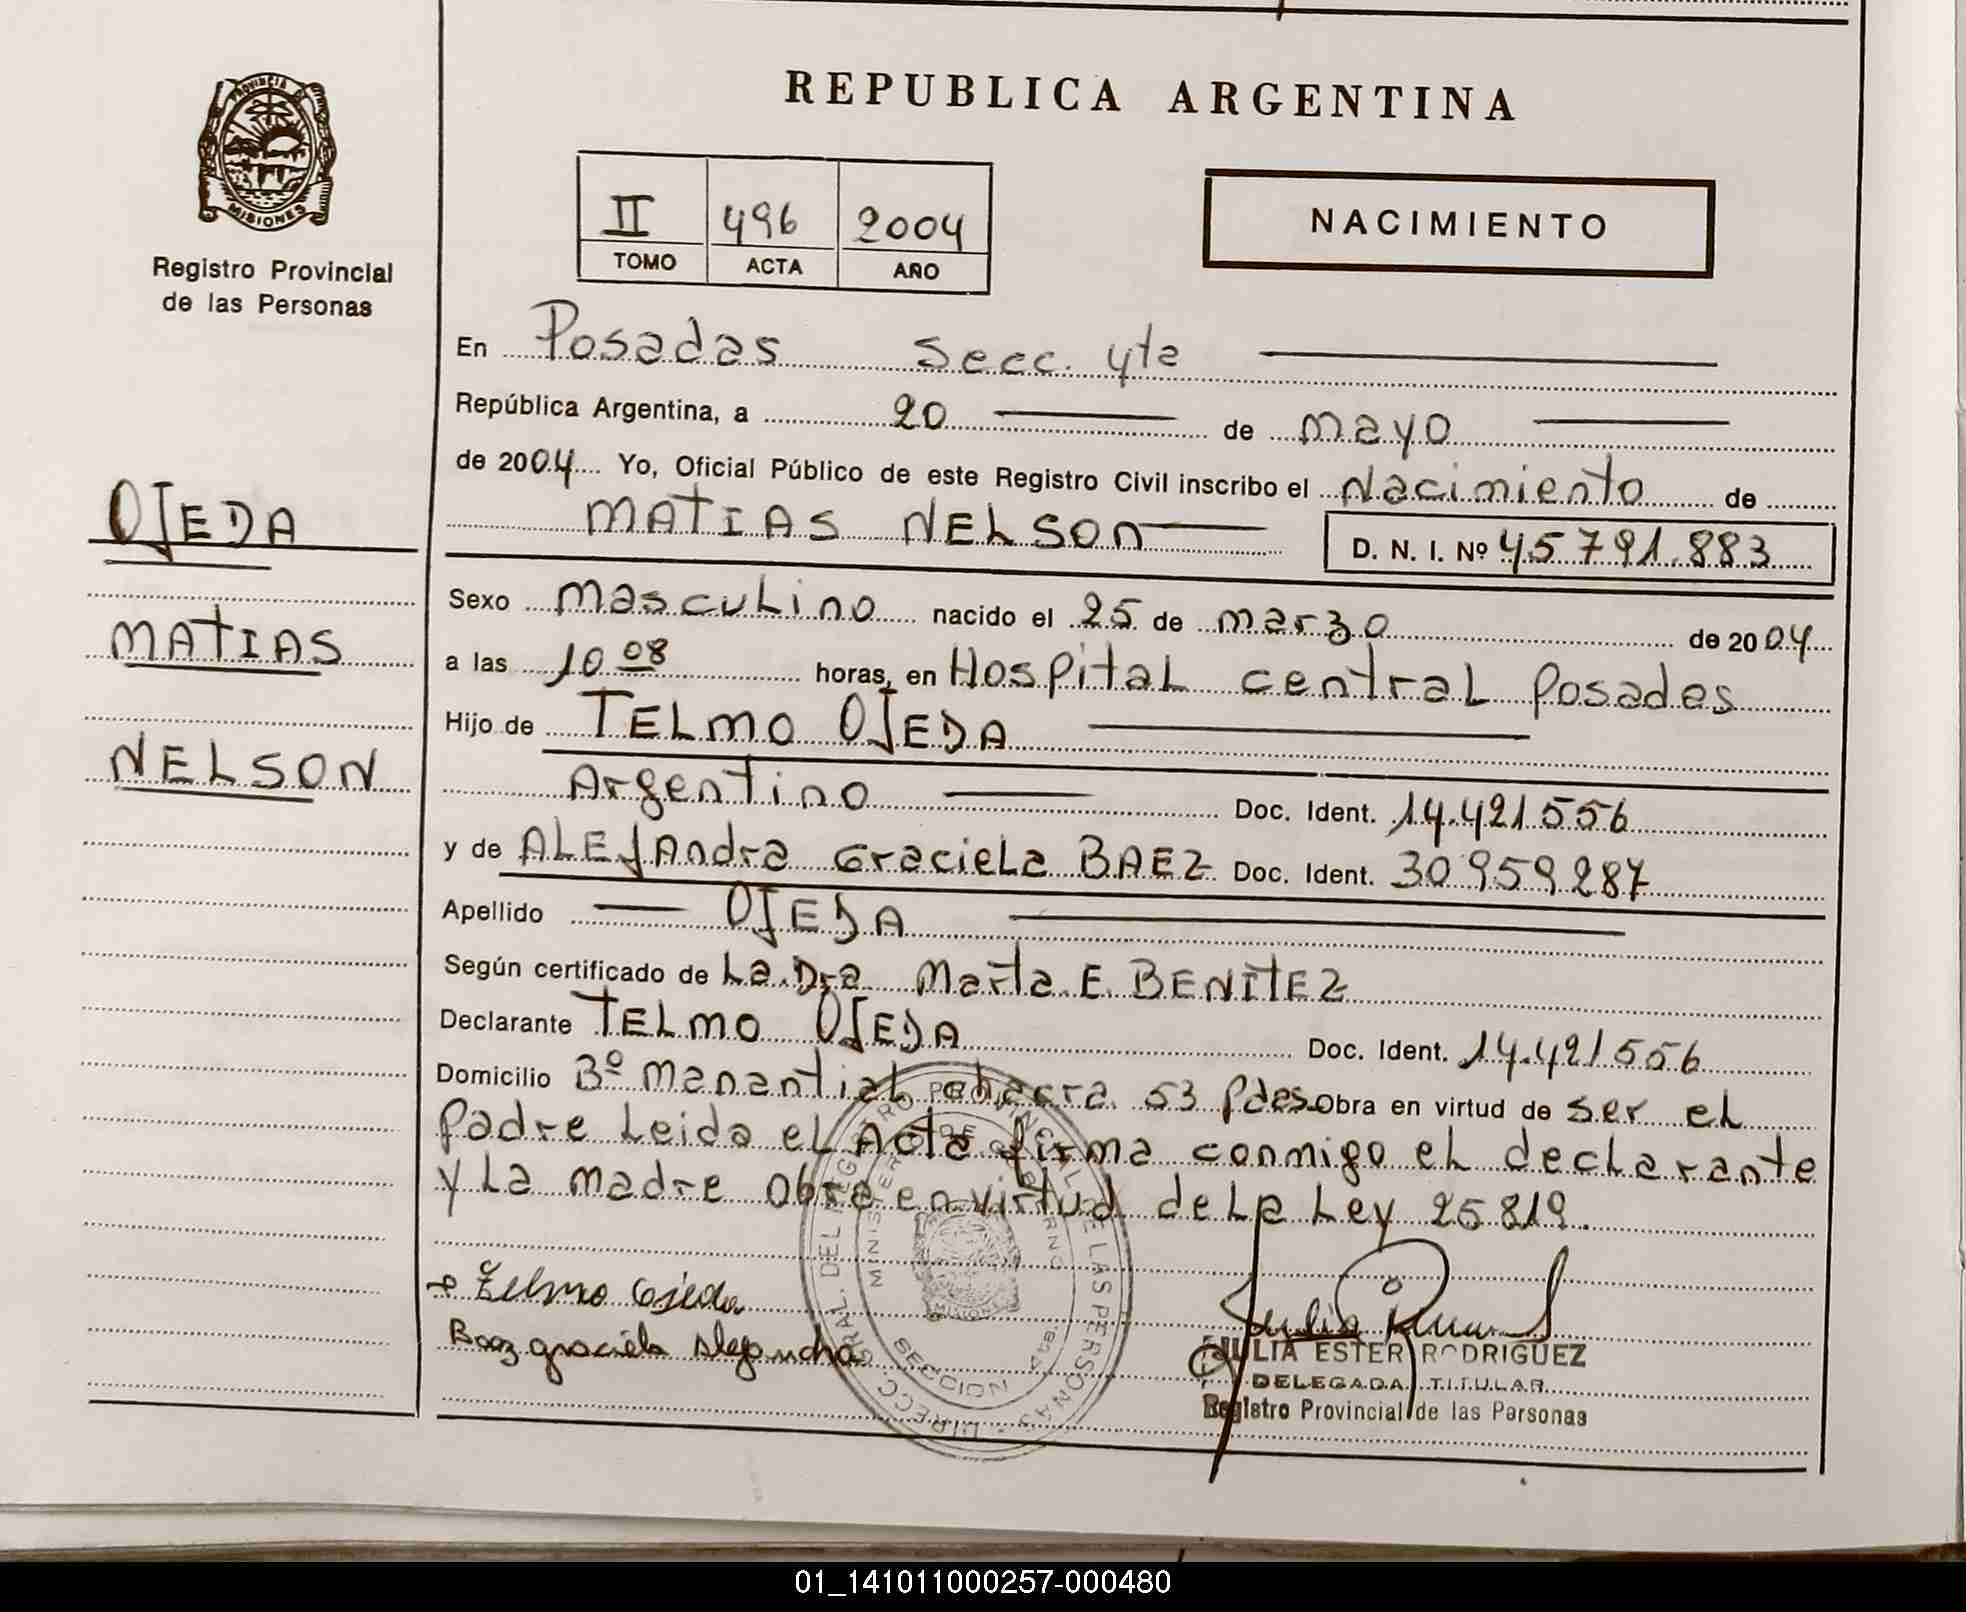 REPUBLICA ARGENTINA
PROVINCIA DE
MISIONES
Registro Provincial
de las Personas
II 496 2004
TOMO ACTA AÑO
NACIMIENTO
En Posadas secc. 4ta
República Argentina, a 20 de mayo
de 2004 Yo, Oficial Público de este Registro Civil inscribo el Nacimiento de
MATIAS NELSON D. N. I. Nº 45.791.883
OJEDA
MATIAS
NELSON
Sexo masculino nacido el 25 de marzo de 2004
a las 10 08 horas, en Hospital central Posadas
Hijo de TELMO OJEDA
Argentino Doc. Ident. 14.421556
y de ALEJAndra Graciela BAEZ Doc. Ident. 30959287
Apellido OJEDA
Según certificado de La Dra Marta E. BENITEZ
Declarante TELMO OJEDA Doc. Ident. 14.421556
Domicilio Bº manantial chacra 53 Pdas Obra en virtud de ser el
padre Leida el Acta firma conmigo el declarante
y La madre obra en virtud de La Ley 25819.
Telmo Ojeda
Baez graciela Alejandra
DIRECC. GRAL. DEL REGISTRO PROVINCIAL DE LAS PERSONAS
MINISTERIO DE GOBIERNO
SECCION
MISIONES
JULIA ESTER RODRIGUEZ
DELEGADA TITULAR
Registro Provincial de las Personas
01_141011000257-000480